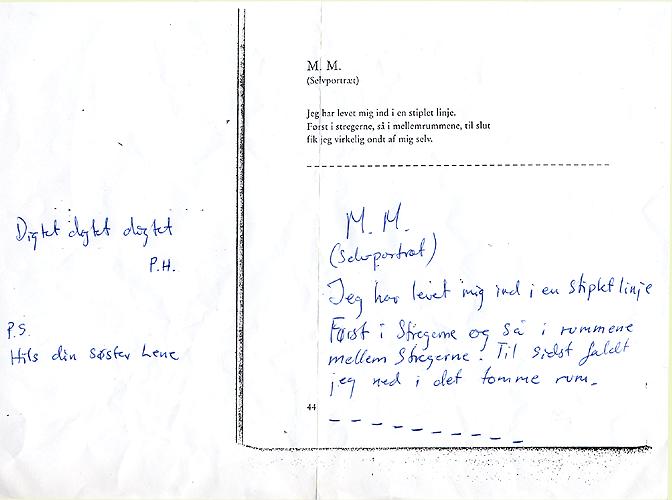 M. M.
(Selvportræt)
Jeg har levet mig ind i en stiplet linje.
Først i stregerne, så i mellemrummene, til slut
fik jeg virkelig ondt af mig selv.
Digtet digtet digtet
P.H.
P.S.
Hils din søster Lene
M. M.
(Selvportræt)
Jeg har levet mig ind i en stiplet linje
Først i stregerne og så i rummene
mellem stregerne. Til sidst faldt
jeg ned i det tomme rum.
44